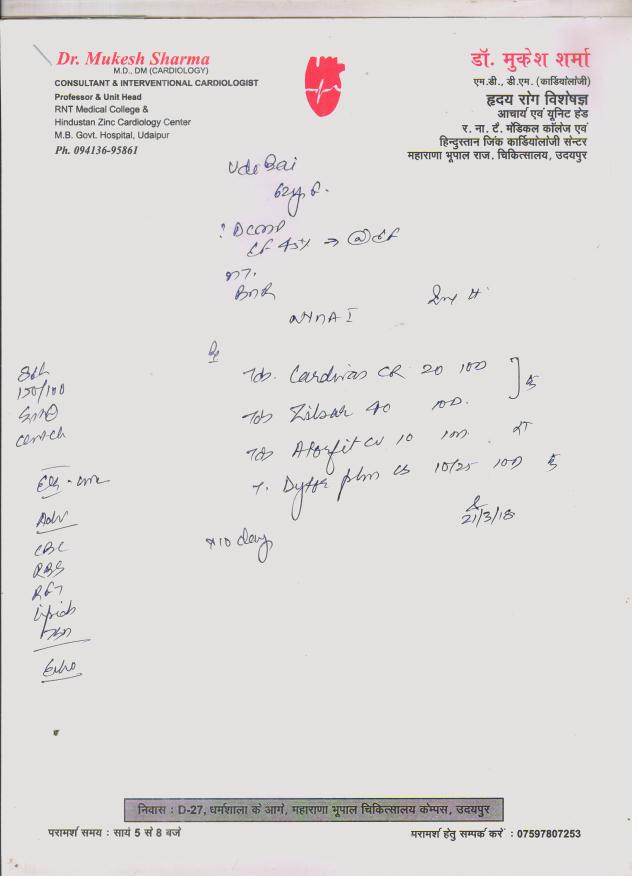 Dr. Mukesh Sharma
M.D., DM (CARDIOLOGY)
CONSULTANT & INTERVENTIONAL CARDIOLOGIST
Professor & Unit Head
RNT Medical College &
Hindustan Zinc Cardiology Center
M.B. Govt. Hospital, Udaipur
Ph. 094136-95861
डॉ. मुकेश शर्मा
एम.डी., डी.एम. (कार्डियोलॉजी)
हृदय रोग विशेषज्ञ
आचार्य एवं यूनिट हेड
र. ना. टै. मेडिकल कॉलेज एवं
हिन्दुस्तान जिंक कार्डियोलॉजी सेन्टर
महाराणा भूपाल राज. चिकित्सालय, उदयपुर
Ude Bai
62y f.
? DCMP
EF 45% →
NYHA I
Rx
Tab. Cardivas CR 20 1OD
150/100
Tab Zilsar 40 1OD.
Tab Atorfit CV 10
T. Dytor plus 10/25 1OD
21/3/18
Adv
CBC
RBS
RFT
Lipids
Echo
x10 days
निवास : D-27, धर्मशाला के आगे, महाराणा भूपाल चिकित्सालय केम्पस, उदयपुर
परामर्श समय : सायं 5 से 8 बजे
परामर्श हेतु सम्पर्क करें : 07597807253